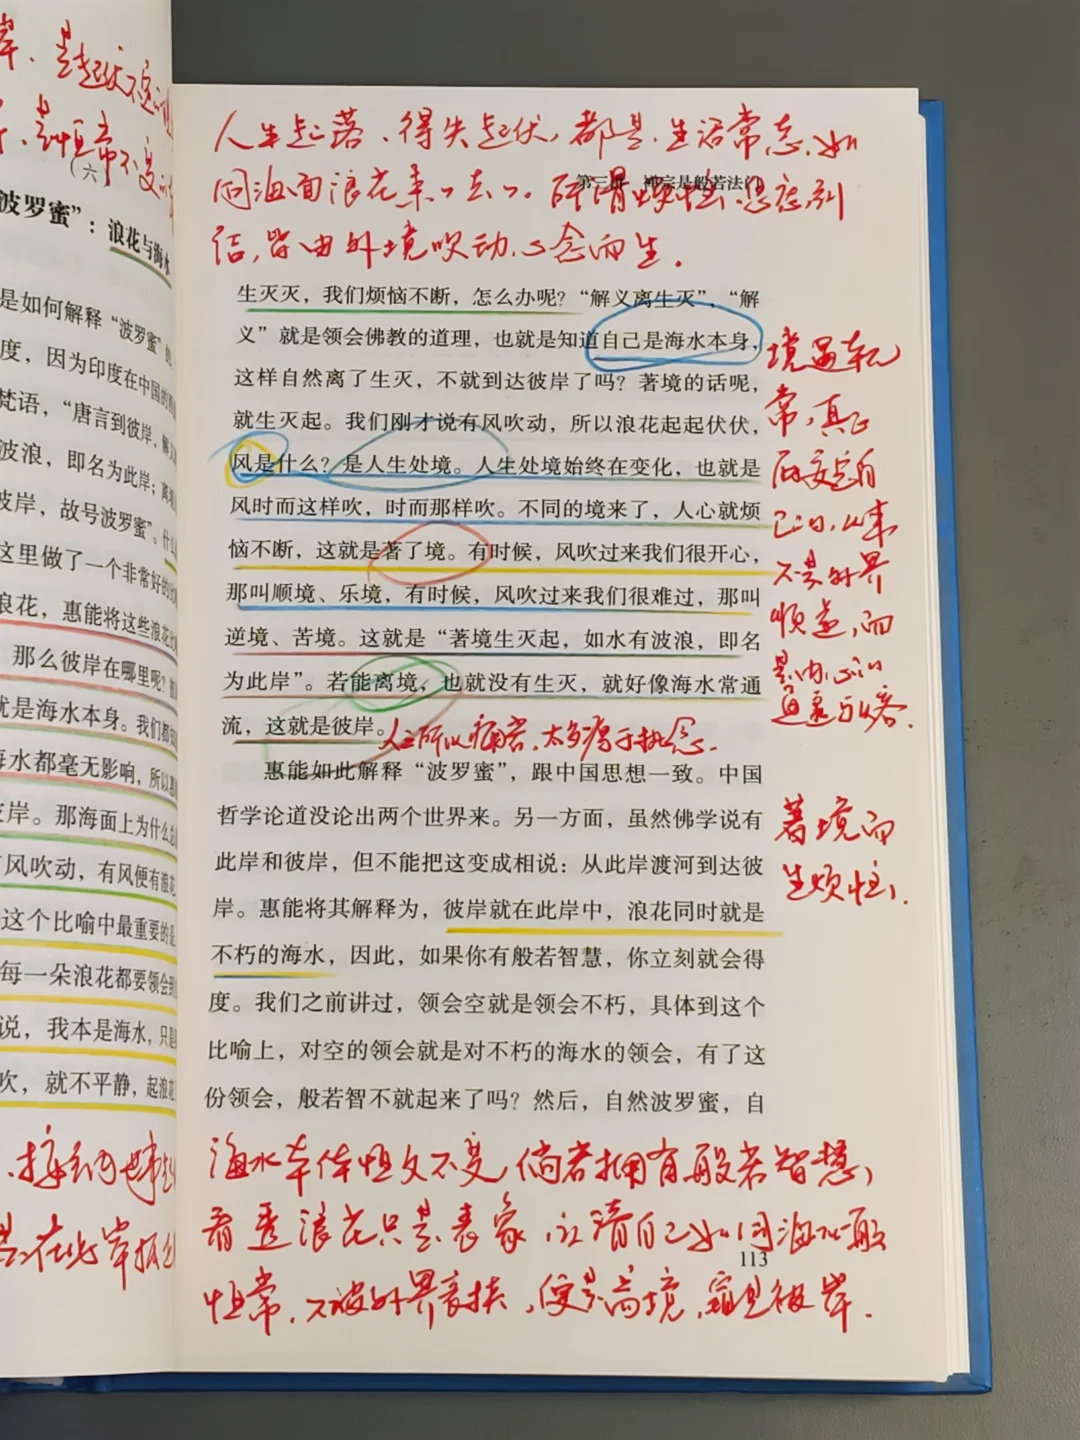 岸、是起伏不定
是恒常不变
（六）
波罗蜜”：浪花与海水
是如何解释“波罗蜜”
度，因为印度在中国的
梵语，“唐言到彼岸，解义
波浪，即名为此岸；离境
彼岸，故号波罗蜜”。什么
这里做了一个非常好的
浪花，惠能将这些浪花
那么彼岸在哪里呢？
就是海水本身。我们都知
海水都毫无影响，所以惠
彼岸。那海面上为什么总
有风吹动，有风便有浪花
这个比喻中最重要的是
每一朵浪花都要领会到
说，我本是海水，只是
吹，就不平静，起浪花
在此岸
人生起落、得失起伏，都是生活常态，如
同海面浪花来来去去。所谓烦恼、思虑、纠
结，皆由外境吹动心念而生。
第三讲 禅宗是般若法门
生灭灭，我们烦恼不断，怎么办呢？“解义离生灭”，“解
义”就是领会佛教的道理，也就是知道自己是海水本身，
这样自然离了生灭，不就到达彼岸了吗？著境的话呢，
就生灭起。我们刚才说有风吹动，所以浪花起起伏伏，
风是什么？是人生处境。人生处境始终在变化，也就是
风时而这样吹，时而那样吹。不同的境来了，人心就烦
恼不断，这就是著了境。有时候，风吹过来我们很开心，
那叫顺境、乐境，有时候，风吹过来我们很难过，那叫
逆境、苦境。这就是“著境生灭起，如水有波浪，即名
为此岸”。若能离境，也就没有生灭，就好像海水常通
流，这就是彼岸。
人之所以痛苦，太多源于执念。
惠能如此解释“波罗蜜”，跟中国思想一致。中国
哲学论道没论出两个世界来。另一方面，虽然佛学说有
此岸和彼岸，但不能把这变成相说：从此岸渡河到达彼
岸。惠能将其解释为，彼岸就在此岸中，浪花同时就是
不朽的海水，因此，如果你有般若智慧，你立刻就会得
度。我们之前讲过，领会空就是领会不朽，具体到这个
比喻上，对空的领会就是对不朽的海水的领会，有了这
份领会，般若智不就起来了吗？然后，自然波罗蜜，自
境遇无
常，真正
的安定自
己的，从来
不是外界
顺遂，而
是内心的
通透与从容。
著境而
生烦恼，
海水本体恒久不变，倘若拥有般若智慧，
看透浪花只是表象，认清自己如同海水般
恒常，不被外界裹挟，便是离境，窥见彼岸。
113